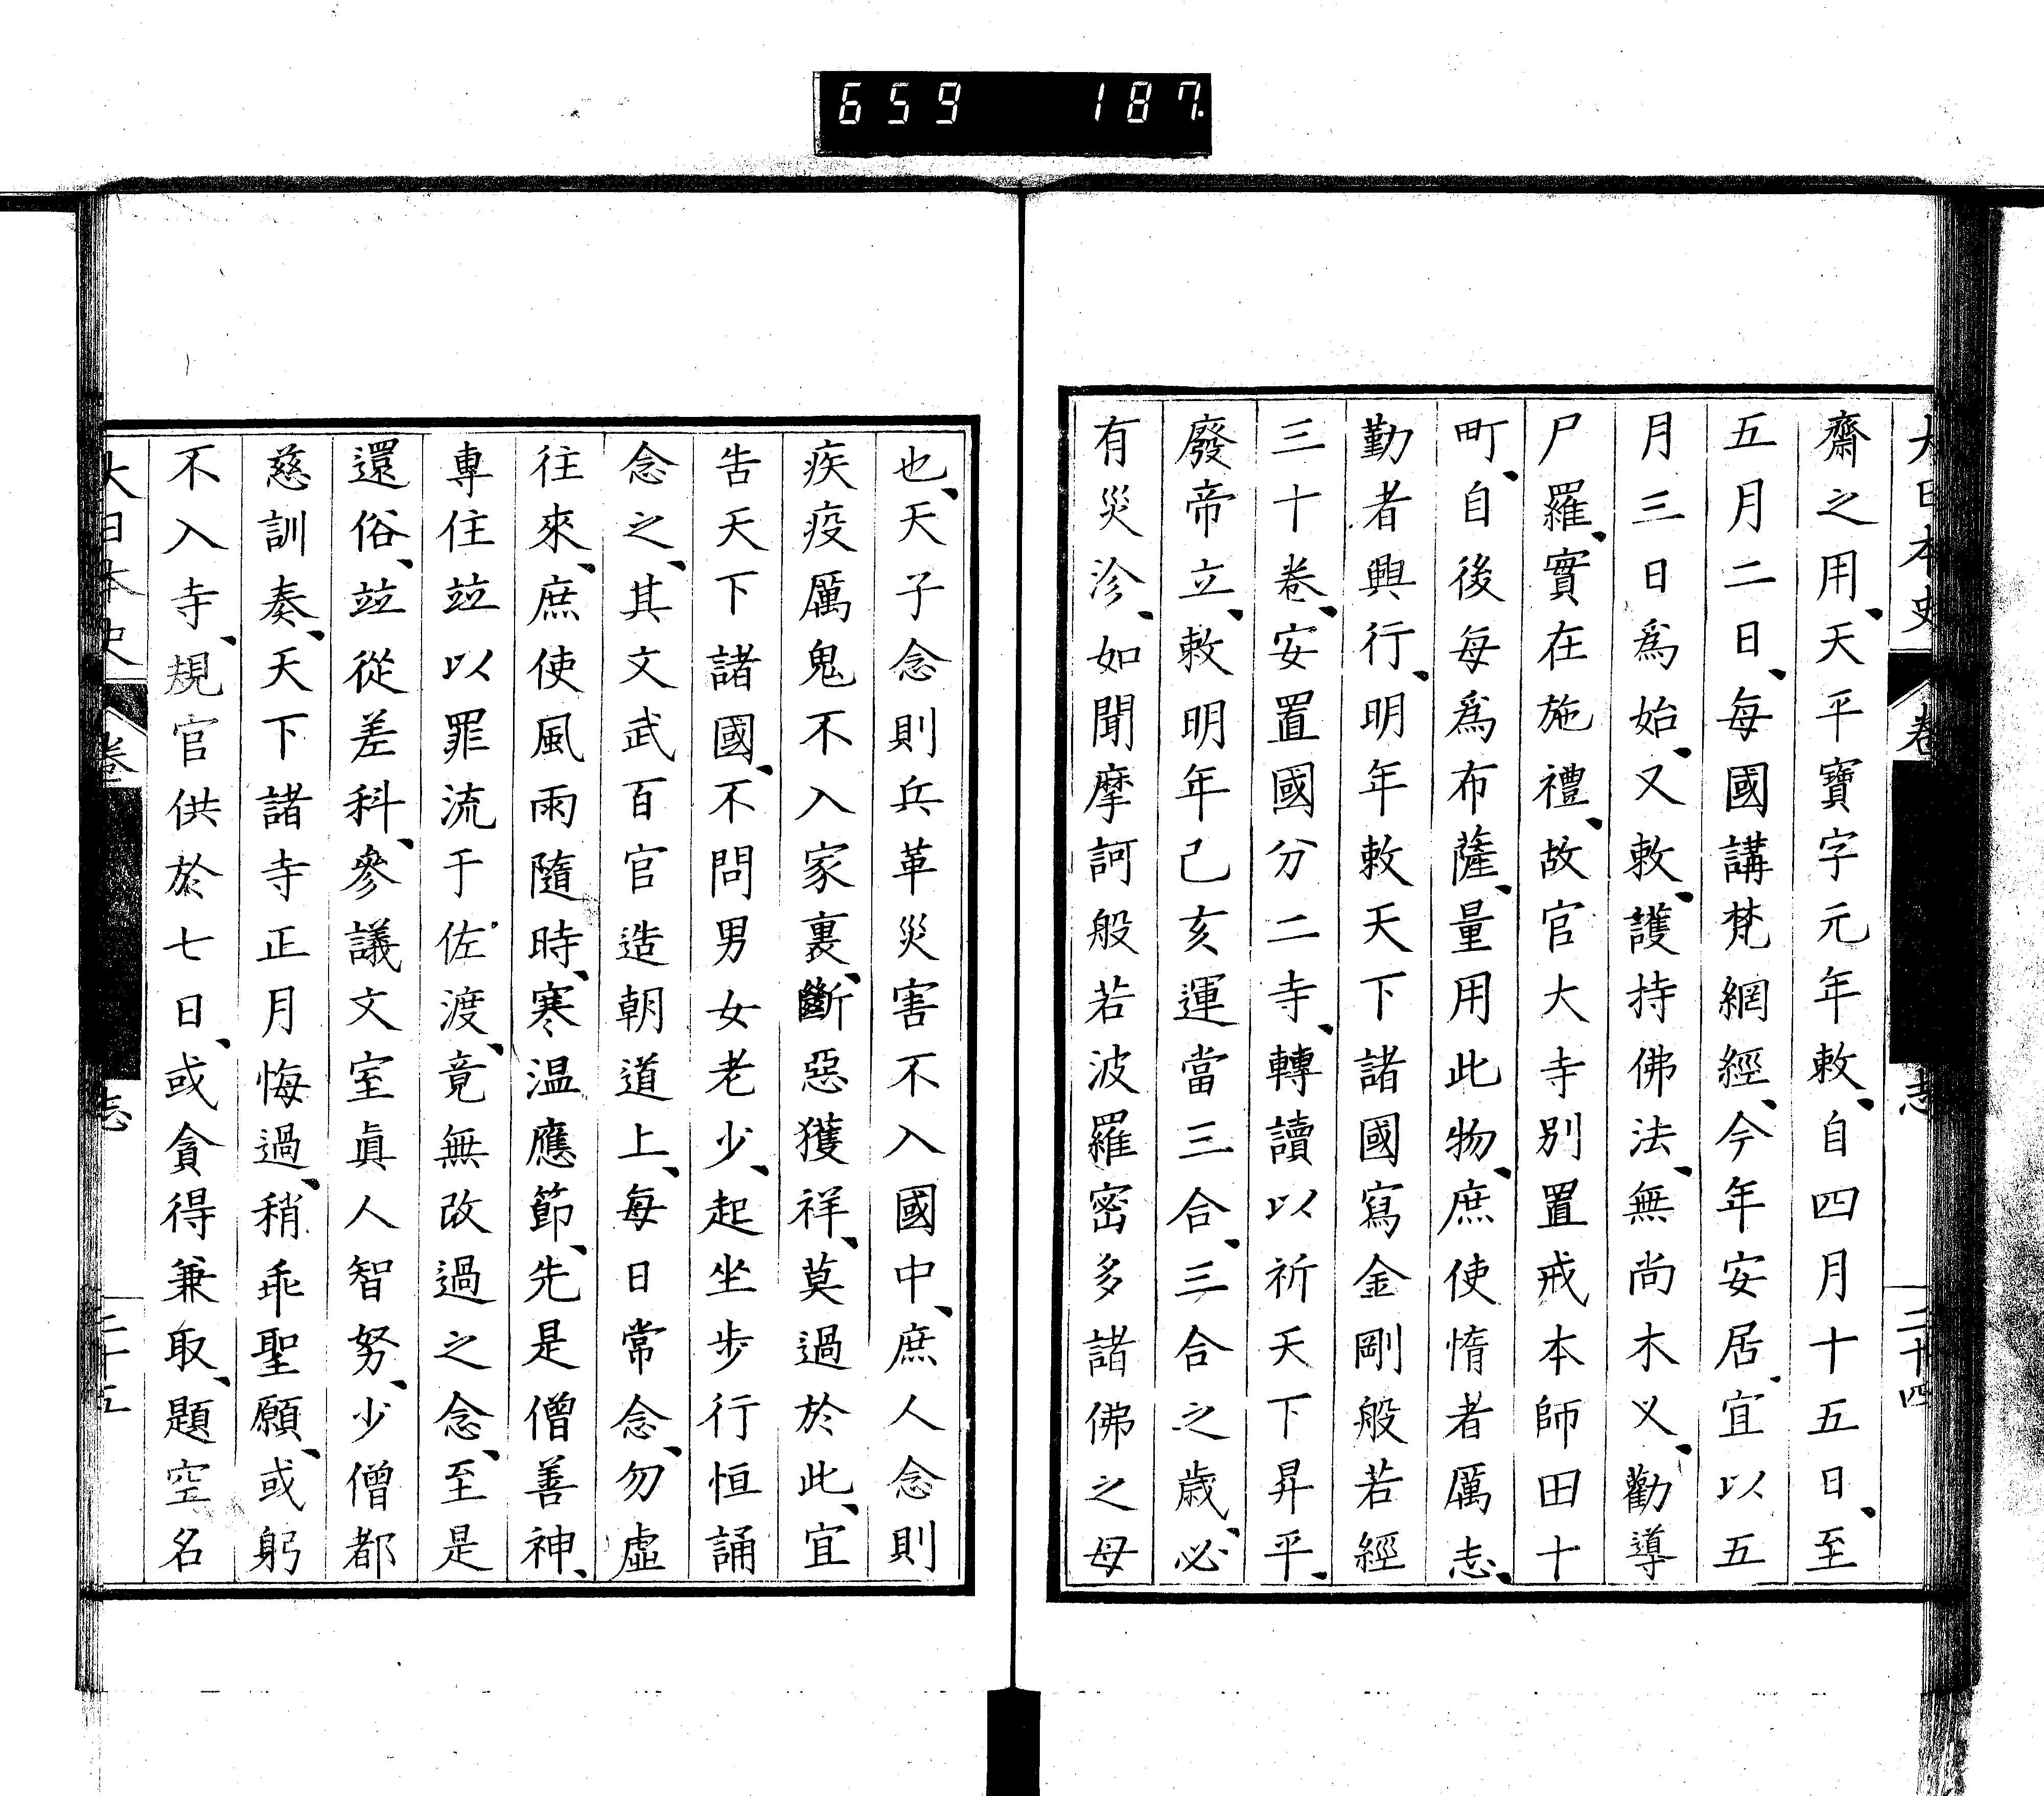 659 187.
大日本史 卷 志 二十四
齋之用、天平寶字元年敕、自四月十五日、至
五月二日、每國講梵網經、今年安居、宜以五
月三日爲始、又敕、護持佛法、無尚木叉、勸導
尸羅、實在施禮、故官大寺別置戒本師田十
町、自後每爲布薩、量用此物、庶使惰者厲志、
勤者興行、明年敕天下諸國寫金剛般若經
三十卷、安置國分二寺、轉讀以祈天下昇平、
廢帝立、敕明年己亥運當三合、三合之歲、必
有災沴、如聞摩訶般若波羅密多諸佛之母
也、天子念則兵革災害不入國中、庶人念則
疾疫厲鬼不入家裏、斷惡獲祥、莫過於此、宜
告天下諸國、不問男女老少、起坐步行恒誦
念之、其文武百官造朝道上、每日常念、勿虛
往來、庶使風雨隨時、寒温應節、先是僧善神、
專住竝以罪流于佐渡、竟無改過之念、至是
還俗、竝從差科、參議文室眞人智努、少僧都
慈訓奏、天下諸寺正月悔過、稍乖聖願、或躬
不入寺、規官供於七日、或貪得兼取、題空名
大日本史 卷 志 二十五